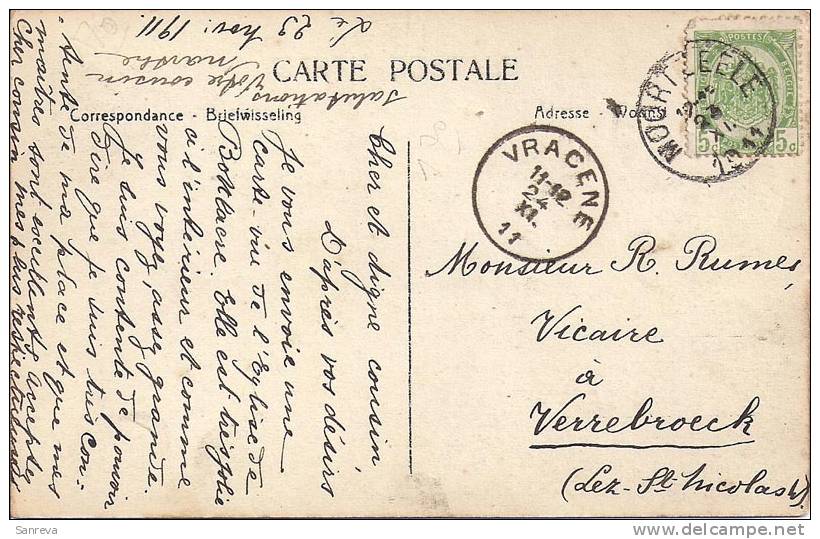 Le 23 Nov: 1911
CARTE POSTALE
Correspondance - Briefwisseling
Adresse -
Cher et digne cousin
D'après vos désirs
Je vous envoie une
carte-vue de l'Eglise de
Bottlaere. Elle est très jolie
à l'intérieur et comme
vous voyez, assez grande.
Je suis contente de pouvoir
dire que je suis très con-
tente de ma place et que mes
maîtres sont excellents, acceptez
Cher cousin mes plus respectueuses
salutations
Votre cousin
POSTES
5c 5c
MOORTZEELE
1911
VRACENE
11-12
24
XI.
11
Monsieur R. Rumes,
Vicaire
à
Verrebroeck
(Lez-St-Nicolas W).
Sanreva
www.delcampe.net